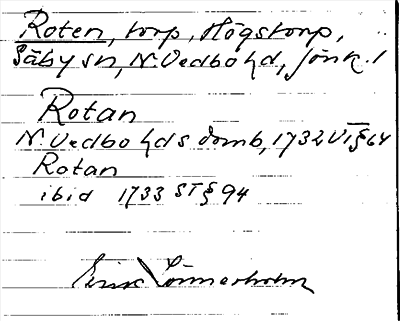 Roten, torp, Högstorp,
Säby sn, N. Vedbo hd, Jönk. l
Rotan
N. Vedbo hds domb, 1732 VI § 64
Rotan
ibid 1733 ST § 94
Erik Lönnerholm